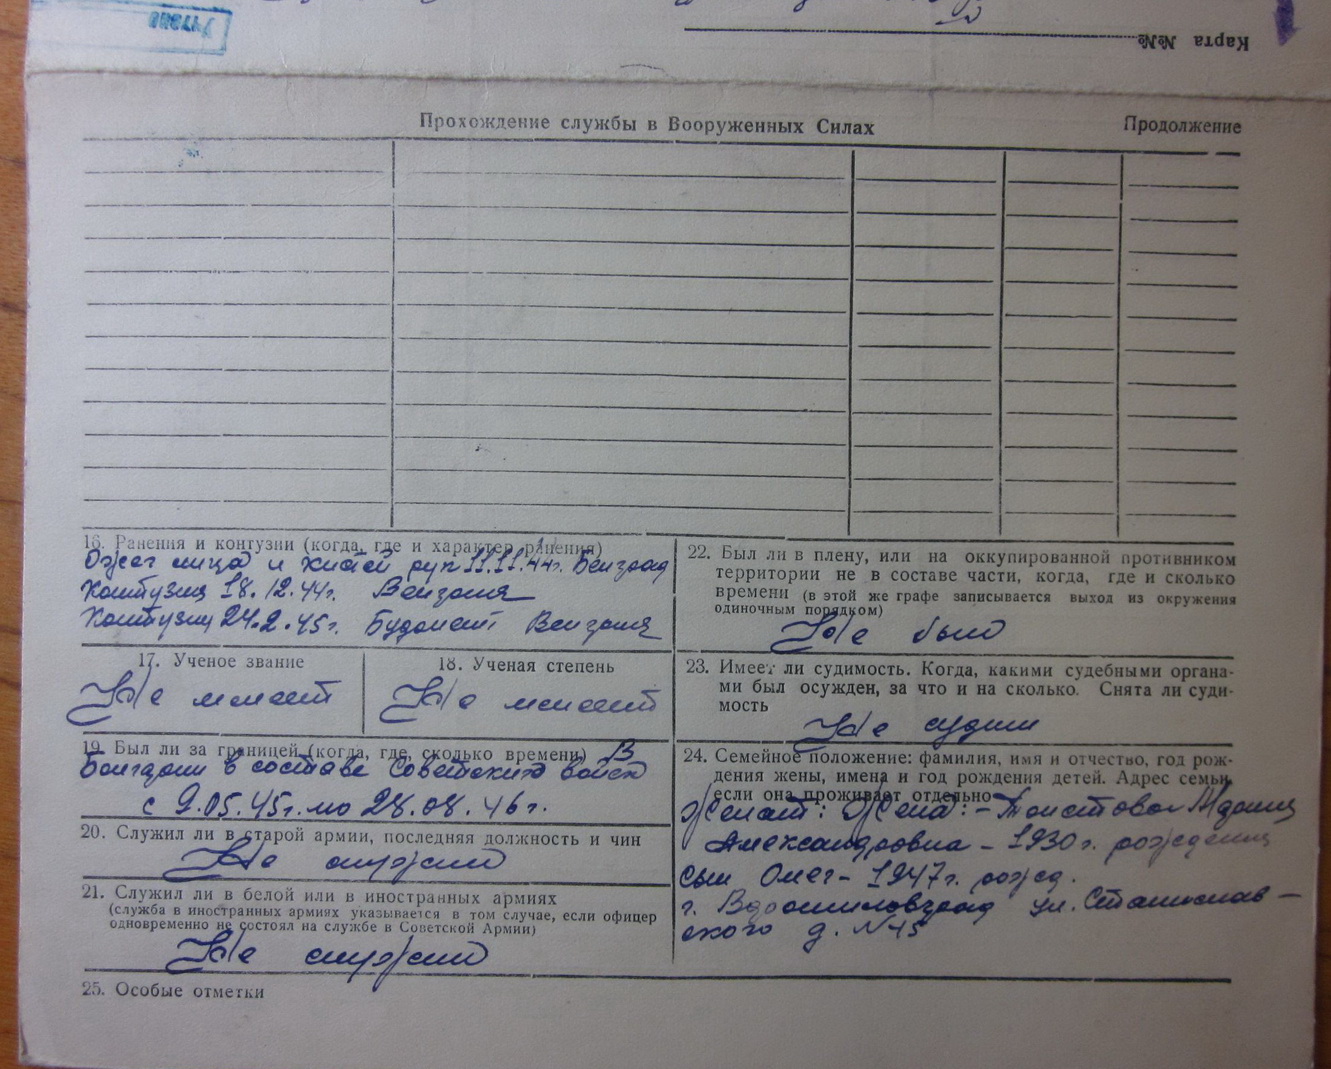 Карта №№
Прохождение службы в Вооруженных Силах
Продолжение
16. Ранения и контузии (когда, где и характер ранения)
Ожег лица и рук 11.11.44г.
Контузия 18.12.44г. Венгрия
Контузия 24.2.45г. Будапешт Венгрия
17. Ученое звание
Не имеет
18. Ученая степень
Не имеет
19. Был ли за границей (когда, где, сколько времени) В
Болгарии в составе Советских войск
с 9.05.45г. по 28.08.46г.
20. Служил ли в старой армии, последняя должность и чин
Не служил
21. Служил ли в белой или в иностранных армиях
(служба в иностранных армиях указывается в том случае, если офицер
одновременно не состоял на службе в Советской Армии)
Не служил
22. Был ли в плену, или на оккупированной противником
территории не в составе части, когда, где и сколько
времени (в этой же графе записывается выход из окружения
одиночным порядком)
Не был
23. Имеет ли судимость. Когда, какими судебными органа-
ми был осужден, за что и на сколько. Снята ли суди-
мость
Не судим
24. Семейное положение: фамилия, имя и отчество, год рож-
дения жены, имена и год рождения детей. Адрес семьи,
если она проживает отдельно
Женат: Жена: - Толстова
Александровна - 1930г. рождения
сын Олег - 1947г. рожд.
г. Ворошиловград ул. Станислав-
ского д. №45
25. Особые отметки